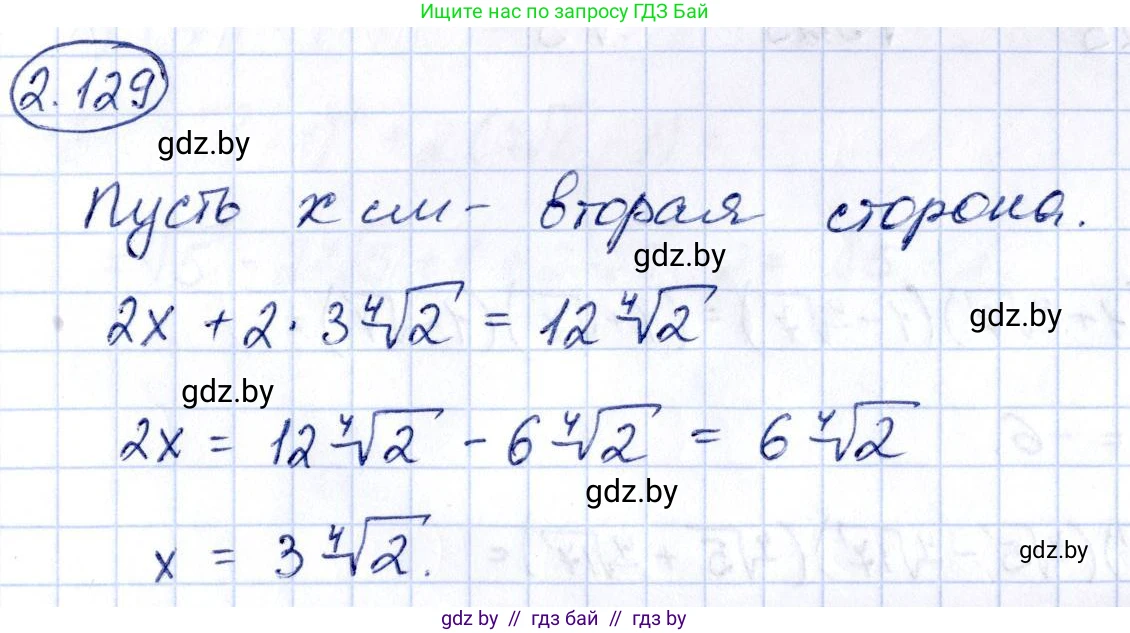 Ищите нас по запросу ГДЗ Бай
2.129
gdz.by
Пусть x см - вторая сторона.
gdz.by
2x + 2 · 3∜2 = 12∜2
gdz.by
gdz.by
2x = 12∜2 - 6∜2 = 6∜2
gdz.by
x = 3∜2.
gdz.by
gdz by // гдз бай // gdz by